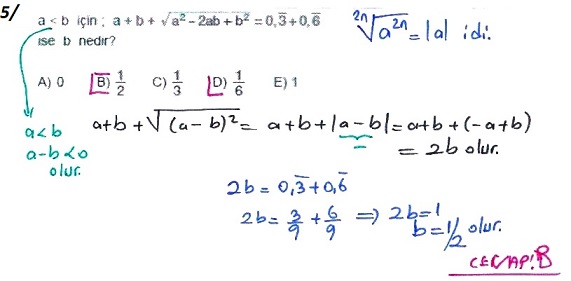 5/
a < b için ; a + b + √(a² − 2ab + b²) = 0,3̅ + 0,6̅
ise b nedir?
²ⁿ√(a²ⁿ) = |a| idi.
A) 0 B) 1/2 C) 1/3 D) 1/6 E) 1
a<b
a-b<0
olur.
a+b+√(a-b)² = a+b+|a-b| = a+b+(-a+b)
= 2b olur.
2b = 0,3̅+0,6̅
2b = 3/9 + 6/9 ⇒ 2b=1
b=1/2 olur.
CEVAP:B